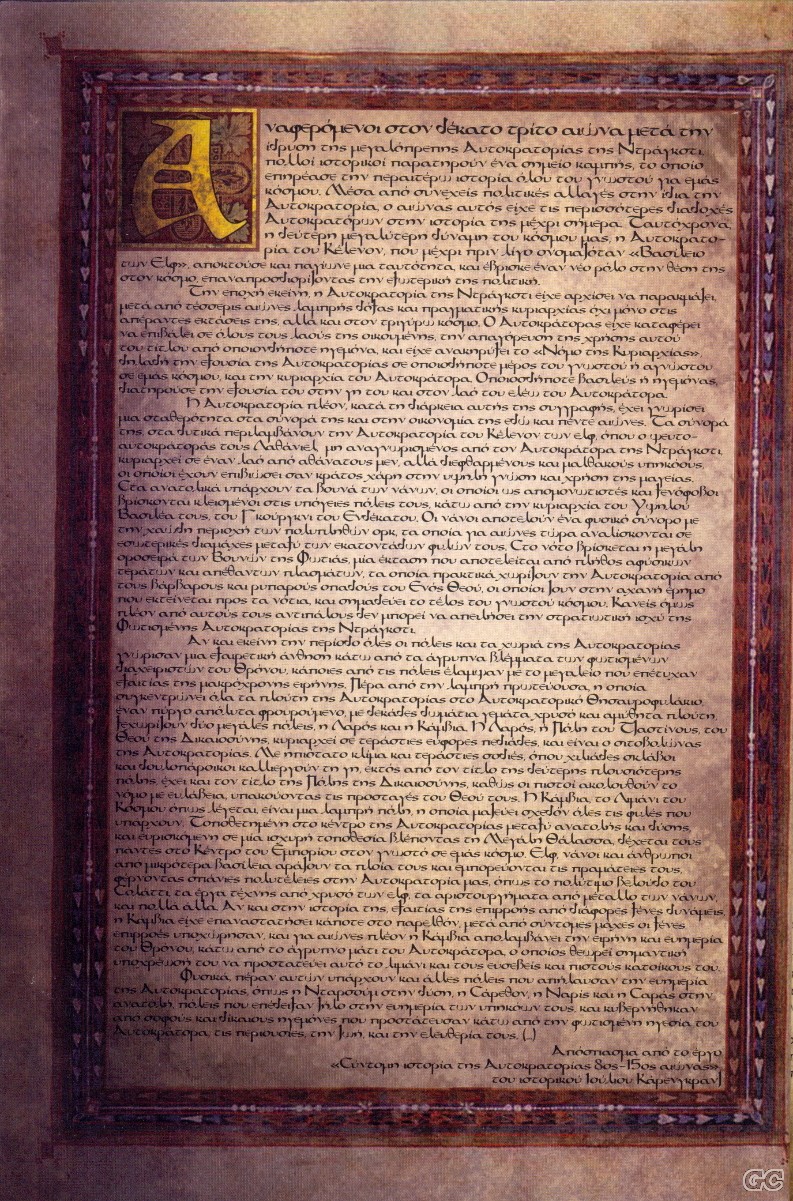 Αναφερόμενοι στον δέκατο τρίτο αιώνα μετά την
ίδρυση της μεγαλόπρεπης Αυτοκρατορίας της Ντράγκστι,
πολλοί ιστορικοί παρατηρούν ένα σημείο καμπής, το οποίο
επηρέασε την περαιτέρω ιστορία όλου του γνωστού για εμάς
κόσμου. Μέσα από συνεχείς πολιτικές αλλαγές στην ίδια την
Αυτοκρατορία, ο αιώνας αυτός είχε τις περισσότερες διαδοχές
Αυτοκρατόρων στην ιστορία της μέχρι σήμερα. Ταυτόχρονα,
η δεύτερη μεγαλύτερη δύναμη του κόσμου μας, η Αυτοκρατο-
ρία του Κέλενον, που μέχρι πριν λίγο ονομαζόταν «Βασίλειο
των Ελφ», αποκτούσε και παγίωνε μια ταυτότητα, και έβρισκε έναν νέο ρόλο στην θέση της
στον κόσμο, επαναπροσδιορίζοντας την εξωτερική της πολιτική.
Την εποχή εκείνη, η Αυτοκρατορία της Ντράγκστι είχε αρχίσει να παρακμάζει,
μετά από τέσσερις αιώνες λαμπρής δόξας και πραγματικής κυριαρχίας όχι μόνο στις
απέραντες εκτάσεις της, αλλά και στον τριγύρω κόσμο. Ο Αυτοκράτορας είχε καταφέρει
να επιβάλει σε όλους τους λαούς της οικουμένης, την απαγόρευση της χρήσης αυτού
του τίτλου από οποιονδήποτε ηγεμόνα, και είχε ανακηρύξει το «Νόμο της Κυριαρχίας»,
δηλαδή την εξουσία της Αυτοκρατορίας σε οποιοδήποτε μέρος του γνωστού ή αγνώστου
σε εμάς κόσμου, και την κυριαρχία του Αυτοκράτορα. Οποιοσδήποτε Βασιλεύς ή ηγεμόνας,
διατηρούσε την εξουσία του στην γη του και στον λαό του ελέω του Αυτοκράτορα.
Η Αυτοκρατορία πλέον, κατά τη διάρκεια αυτής της συγγραφής, έχει γνωρίσει
μια σταθερότητα στα σύνορά της και στην οικονομία της εδώ και πέντε αιώνες. Τα σύνορά
της, στα δυτικά περιλαμβάνουν την Αυτοκρατορία του Κέλενον των ελφ, όπου ο ψευτο-
αυτοκράτοράς τους Λαθάνιελ, μη αναγνωρισμένος από τον Αυτοκράτορα της Ντράγκστι,
κυριαρχεί σε έναν λαό από αθάνατους μεν, αλλά διεφθαρμένους και μαλθακούς υπηκόους,
οι οποίοι έχουν επιβιώσει σαν κράτος χάρη στην υψηλή γνώση και χρήση της μαγείας.
Στα ανατολικά υπάρχουν τα βουνά των νάνων, οι οποίοι ως απομονωτιστές και ξενόφοβοι
βρίσκονται κλεισμένοι στις υπόγειες πόλεις τους, κάτω από την κυριαρχία του Υψηλού
Βασιλέα τους, του Γκούργκνι του Ενδέκατου. Οι νάνοι αποτελούν ένα φυσικό σύνορο με
την χαώδη περιοχή των πολυπληθών ορκ, τα οποία για αιώνες τώρα αναλίσκονται σε
εσωτερικές διαμάχες μεταξύ των εκατοντάδων φυλών τους. Στο νότο βρίσκεται η μεγάλη
οροσειρά των Βουνών της Φωτιάς, μία έκταση που αποτελείται από πλήθος αφύσικων
τεράτων και απέθαντων πλασμάτων, τα οποία πρακτικά χωρίζουν την Αυτοκρατορία από
τους βάρβαρους και ρυπαρούς οπαδούς του Ενός Θεού, οι οποίοι ζουν στην αχανή έρημο
που εκτείνεται προς τα νότια, και σημαδεύει το τέλος του γνωστού κόσμου. Κανείς όμως
πλέον από αυτούς τους αντιπάλους δεν μπορεί να απειλήσει την στρατιωτική ισχύ της
Φωτισμένης Αυτοκρατορίας της Ντράγκστι.
Αν και εκείνη την περίοδο όλες οι πόλεις και τα χωριά της Αυτοκρατορίας
γνώρισαν μια εξαιρετική άνθηση κάτω από τα άγρυπνα βλέμματα των φωτισμένων
διαχειριστών του Θρόνου, κάποιες από τις πόλεις έλαμψαν με το μεγαλείο που επέτυχαν
εξαιτίας της μακρόχρονης ειρήνης. Πέρα από την λαμπρή πρωτεύουσα, η οποία
συγκεντρώνει όλα τα πλούτη της Αυτοκρατορίας στο Αυτοκρατορικό Θησαυροφυλάκιο,
έναν πύργο απόλυτα φρουρούμενο, με δεκάδες δωμάτια γεμάτα χρυσό και αμύθητα πλούτη,
ξεχωρίζουν δύο μεγάλες πόλεις, η Λαρός και η Κάμβια. Η Λαρός, η Πόλη του Τζαστίνους, του
Θεού της Δικαιοσύνης, κυριαρχεί σε τεράστιες εύφορες πεδιάδες, και είναι ο σιτοβολώνας
της Αυτοκρατορίας. Με ηπιότατο κλίμα και τεράστιες σοδιές, όπου χιλιάδες σκλάβοι
και δουλοπάροικοι καλλιεργούν τη γη, εκτός από τον τίτλο της δεύτερης πλουσιότερης
πόλης, έχει και τον τίτλο της Πόλης της Δικαιοσύνης, καθώς οι πιστοί ακολουθούν το
νόμο με ευλάβεια, υπακούοντας τις προσταγές του Θεού τους. Η Κάμβια, το Λιμάνι του
Κόσμου όπως λέγεται, είναι μια λαμπρή πόλη, η οποία μαζεύει σχεδόν όλες τις φυλές που
υπάρχουν. Τοποθετημένη στο κέντρο της Αυτοκρατορίας μεταξύ ανατολής και δύσης,
και ευρισκόμενη σε μία ισχυρή τοποθεσία βλέποντας τη Μεγάλη Θάλασσα, δέχεται τους
πάντες στο Κέντρο του Εμπορίου στον γνωστό σε εμάς κόσμο. Ελφ, νάνοι και άνθρωποι
από μικρότερα βασίλεια αράζουν τα πλοία τους και εμπορεύονται τις πραμάτειες τους,
φέρνοντας σπάνιες πολυτέλειες στην Αυτοκρατορία μας, όπως το πολύτιμο βελούδο του
Σολάττι, τα έργα τέχνης από χρυσό των ελφ, τα αριστουργήματα από μέταλλο των νάνων,
και πολλά άλλα. Αν και στην ιστορία της, εξαιτίας της επιρροής από διάφορες ξένες δυνάμεις,
η Κάμβια είχε επαναστατήσει κάποτε στο παρελθόν, μετά από σύντομες μάχες οι ξένες
επιρροές υποχώρησαν, και για αιώνες πλέον η Κάμβια απολαμβάνει την ειρήνη και ευημερία
του Θρόνου, κάτω από το άγρυπνο μάτι του Αυτοκράτορα, ο οποίος θεωρεί σημαντική
υποχρέωσή του να προστατεύει αυτό το λιμάνι και τους ευσεβείς και πιστούς κατοίκους του.
Φυσικά, πέραν αυτών υπάρχουν και άλλες πόλεις που απήλαυσαν την ευημερία
της Αυτοκρατορίας, όπως η Νταρσούμ στην δύση, η Σάρεθον, η Ναρίς και η Σαράς στην
ανατολή, πόλεις που επέδειξαν ζήλο στην ευημερία των υπηκόων τους, και κυβερνήθηκαν
από σοφούς και δίκαιους ηγεμόνες που προστάτευσαν κάτω από την φωτισμένη ηγεσία του
Αυτοκράτορα, τις περιουσίες, την ζωή, και την ελευθερία τους. (...)
Απόσπασμα από το έργο
«Σύντομη ιστορία της Αυτοκρατορίας 8ος-15ος αιώνας»,
του ιστορικού Ιούλιου Κάρενγκρανζ
GC